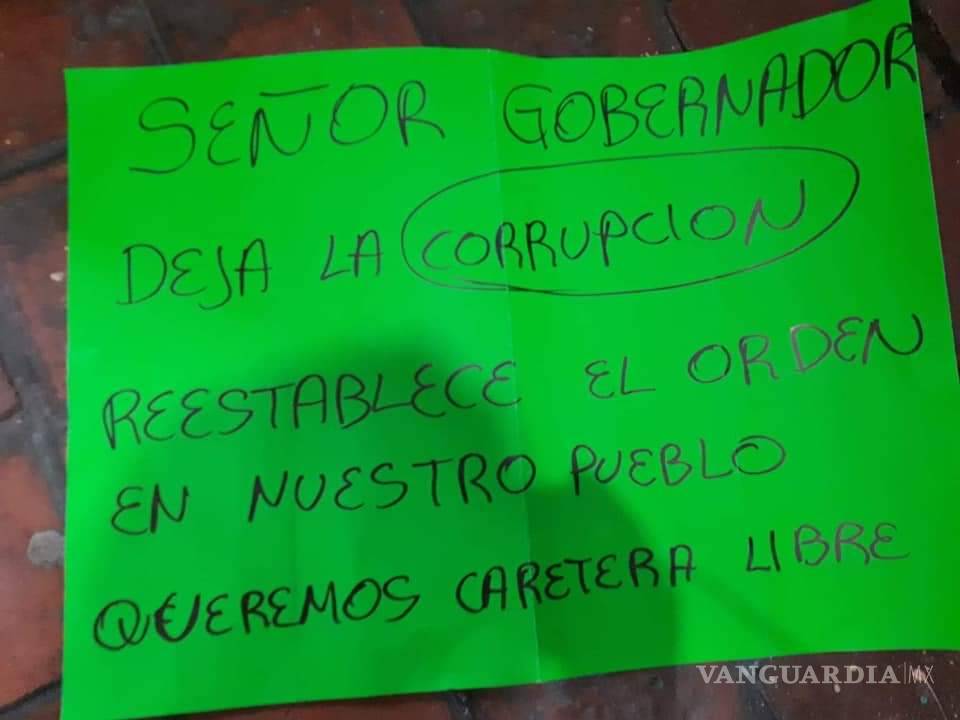 SEÑOR GOBERNADOR
DEJA LA CORRUPCION
REESTABLECE EL ORDEN
EN NUESTRO PUEBLO
QUEREMOS CARETERA LIBRE
VANGUARDIA|MX